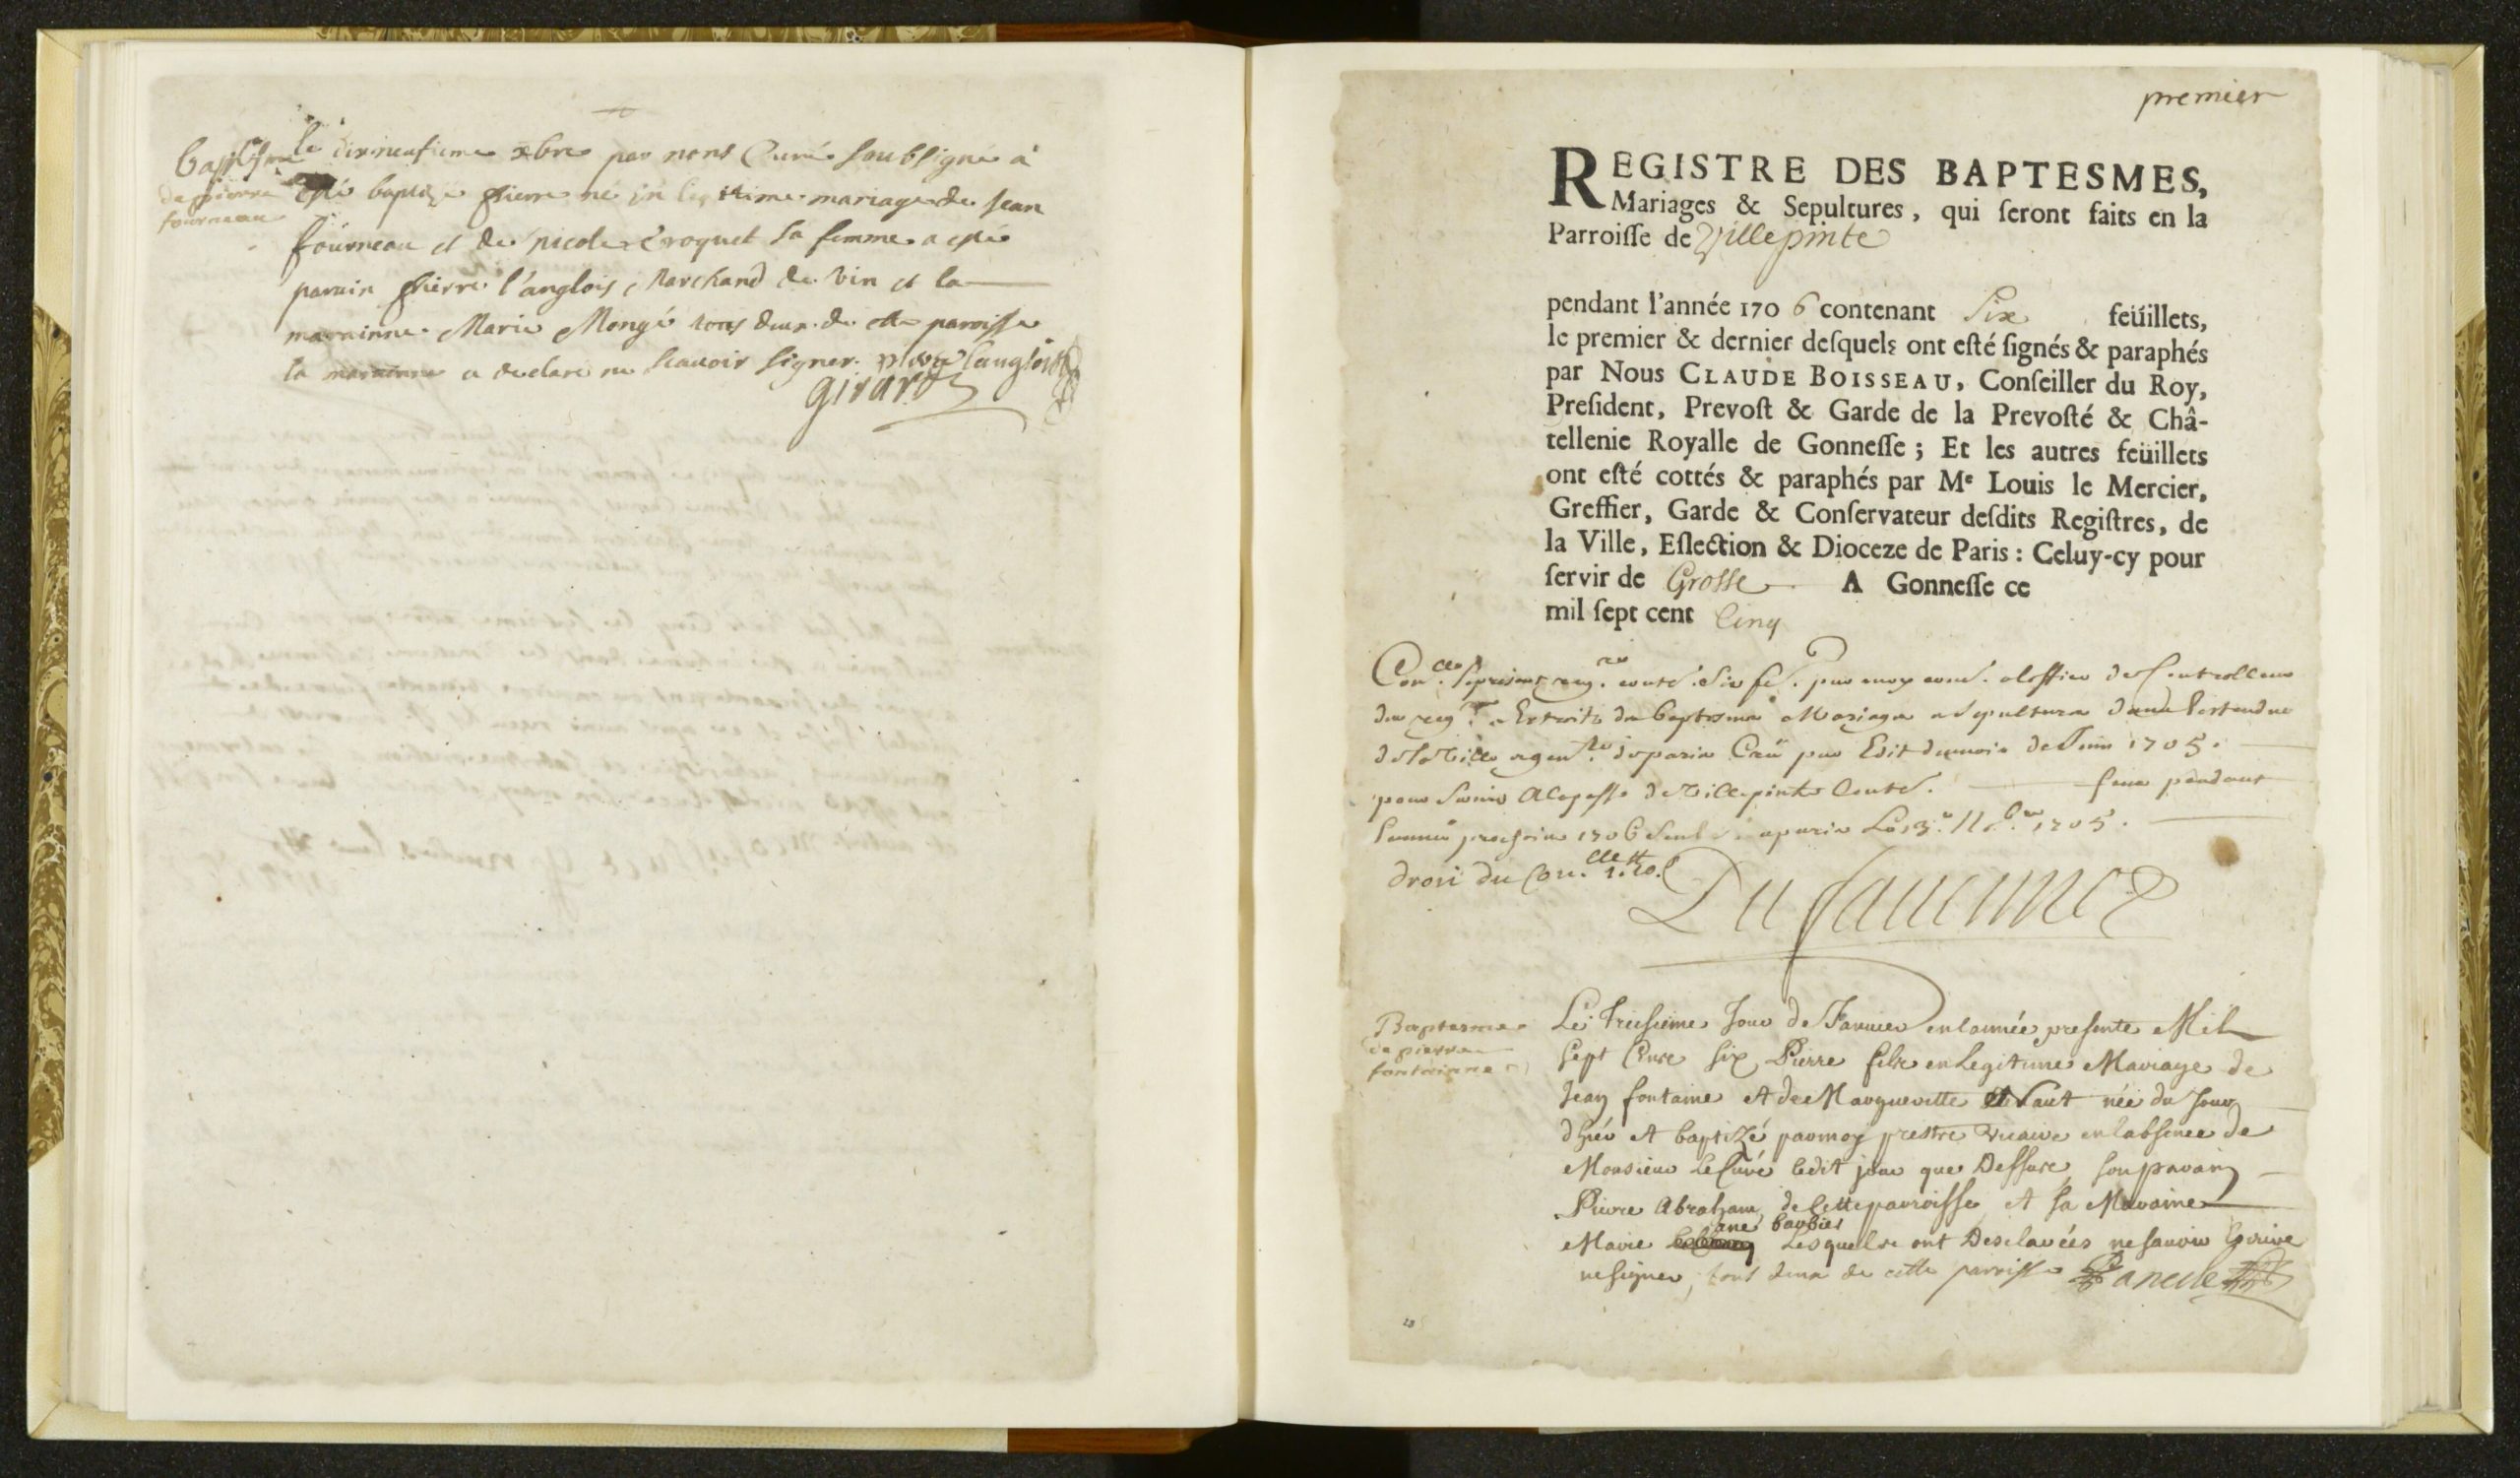 Baptesme
de pierre
fourneau
Le dixneufieme xbre par nous Curé soubsigné a
esté baptizé pierre né en legitime mariage de Jean
fourneau et de nicole Croquet sa femme a esté
parain pierre l'anglois Marchand de vin et la
marainne Marie Mongé tous deux de cette paroisse
la marainne a declaré ne scauoir signer. pierre langlois
girard
premier
REGISTRE DES BAPTESMES,
Mariages & Sepultures, qui ſeront faits en la
Parroiſſe de Villepinte
pendant l'année 170 6 contenant Six feüillets,
le premier & dernier deſquels ont eſté ſignés & paraphés
par Nous CLAUDE BOISSEAU, Conſeiller du Roy,
Preſident, Prevoſt & Garde de la Prevoſté & Châ-
tellenie Royalle de Gonneſſe ; Et les autres feüillets
ont eſté cottés & paraphés par Me Louis le Mercier,
Greffier, Garde & Conſervateur deſdits Regiſtres, de
la Ville, Eſlection & Dioceze de Paris : Celuy-cy pour
ſervir de Grosse A Gonneſſe ce
mil ſept cent Cinq
Con.lle le present reg.re cont. Six fe. par moy
du reg. Extraits de baptesme Mariage et sepulture dans l'estendue
de la ville de paris Creé par Edit du mois de Juin 1705.
pour servir a la passe de villepinte pendant
l'annee prochaine 1706 a paris Le 9bre 1705.
droit du Con.lle 1.10
Baptesme
de pierre
fontainne
Le Treisieme Jour de Januier en lannée presente Mil
sept Cens six Pierre fils en Legitime Mariage de
Jean fontaine et de Margueritte née du Jour
dhier et baptizé par moy prestre vicaire en labsence de
Monsieur Le Curé ledit jour que Dessus, son parain
Pierre Abraham de Cette parroisse et sa Maraine
ane barbier
Marie Lesquelse ont Desclarées ne sauoir Escrire
ne signer, tous deux de cette parroisse